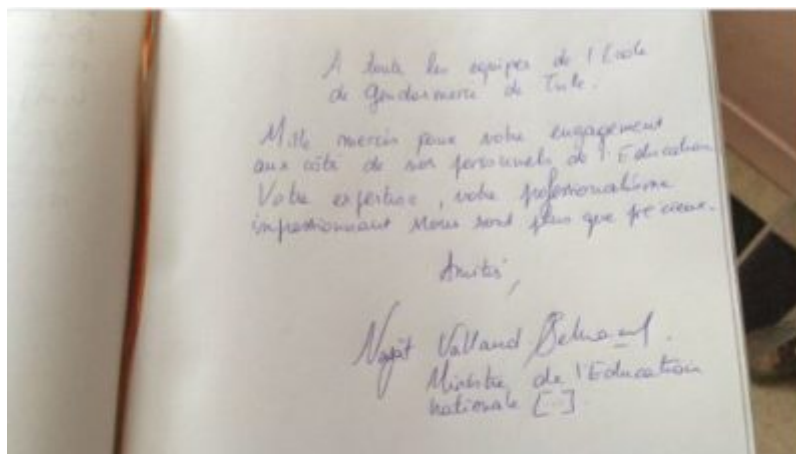 A toute les équipes de l'Ecole
de Gendarmerie de Tulle.
Mille mercis pour votre engagement
aux côté de nos personnels de l'Education
Votre expertise, votre professionalisme
impressionnant nous sont plus que précieux.
Amitiés,
Najat Vallaud Belkacem.
Ministre de l'Education
nationale [...]